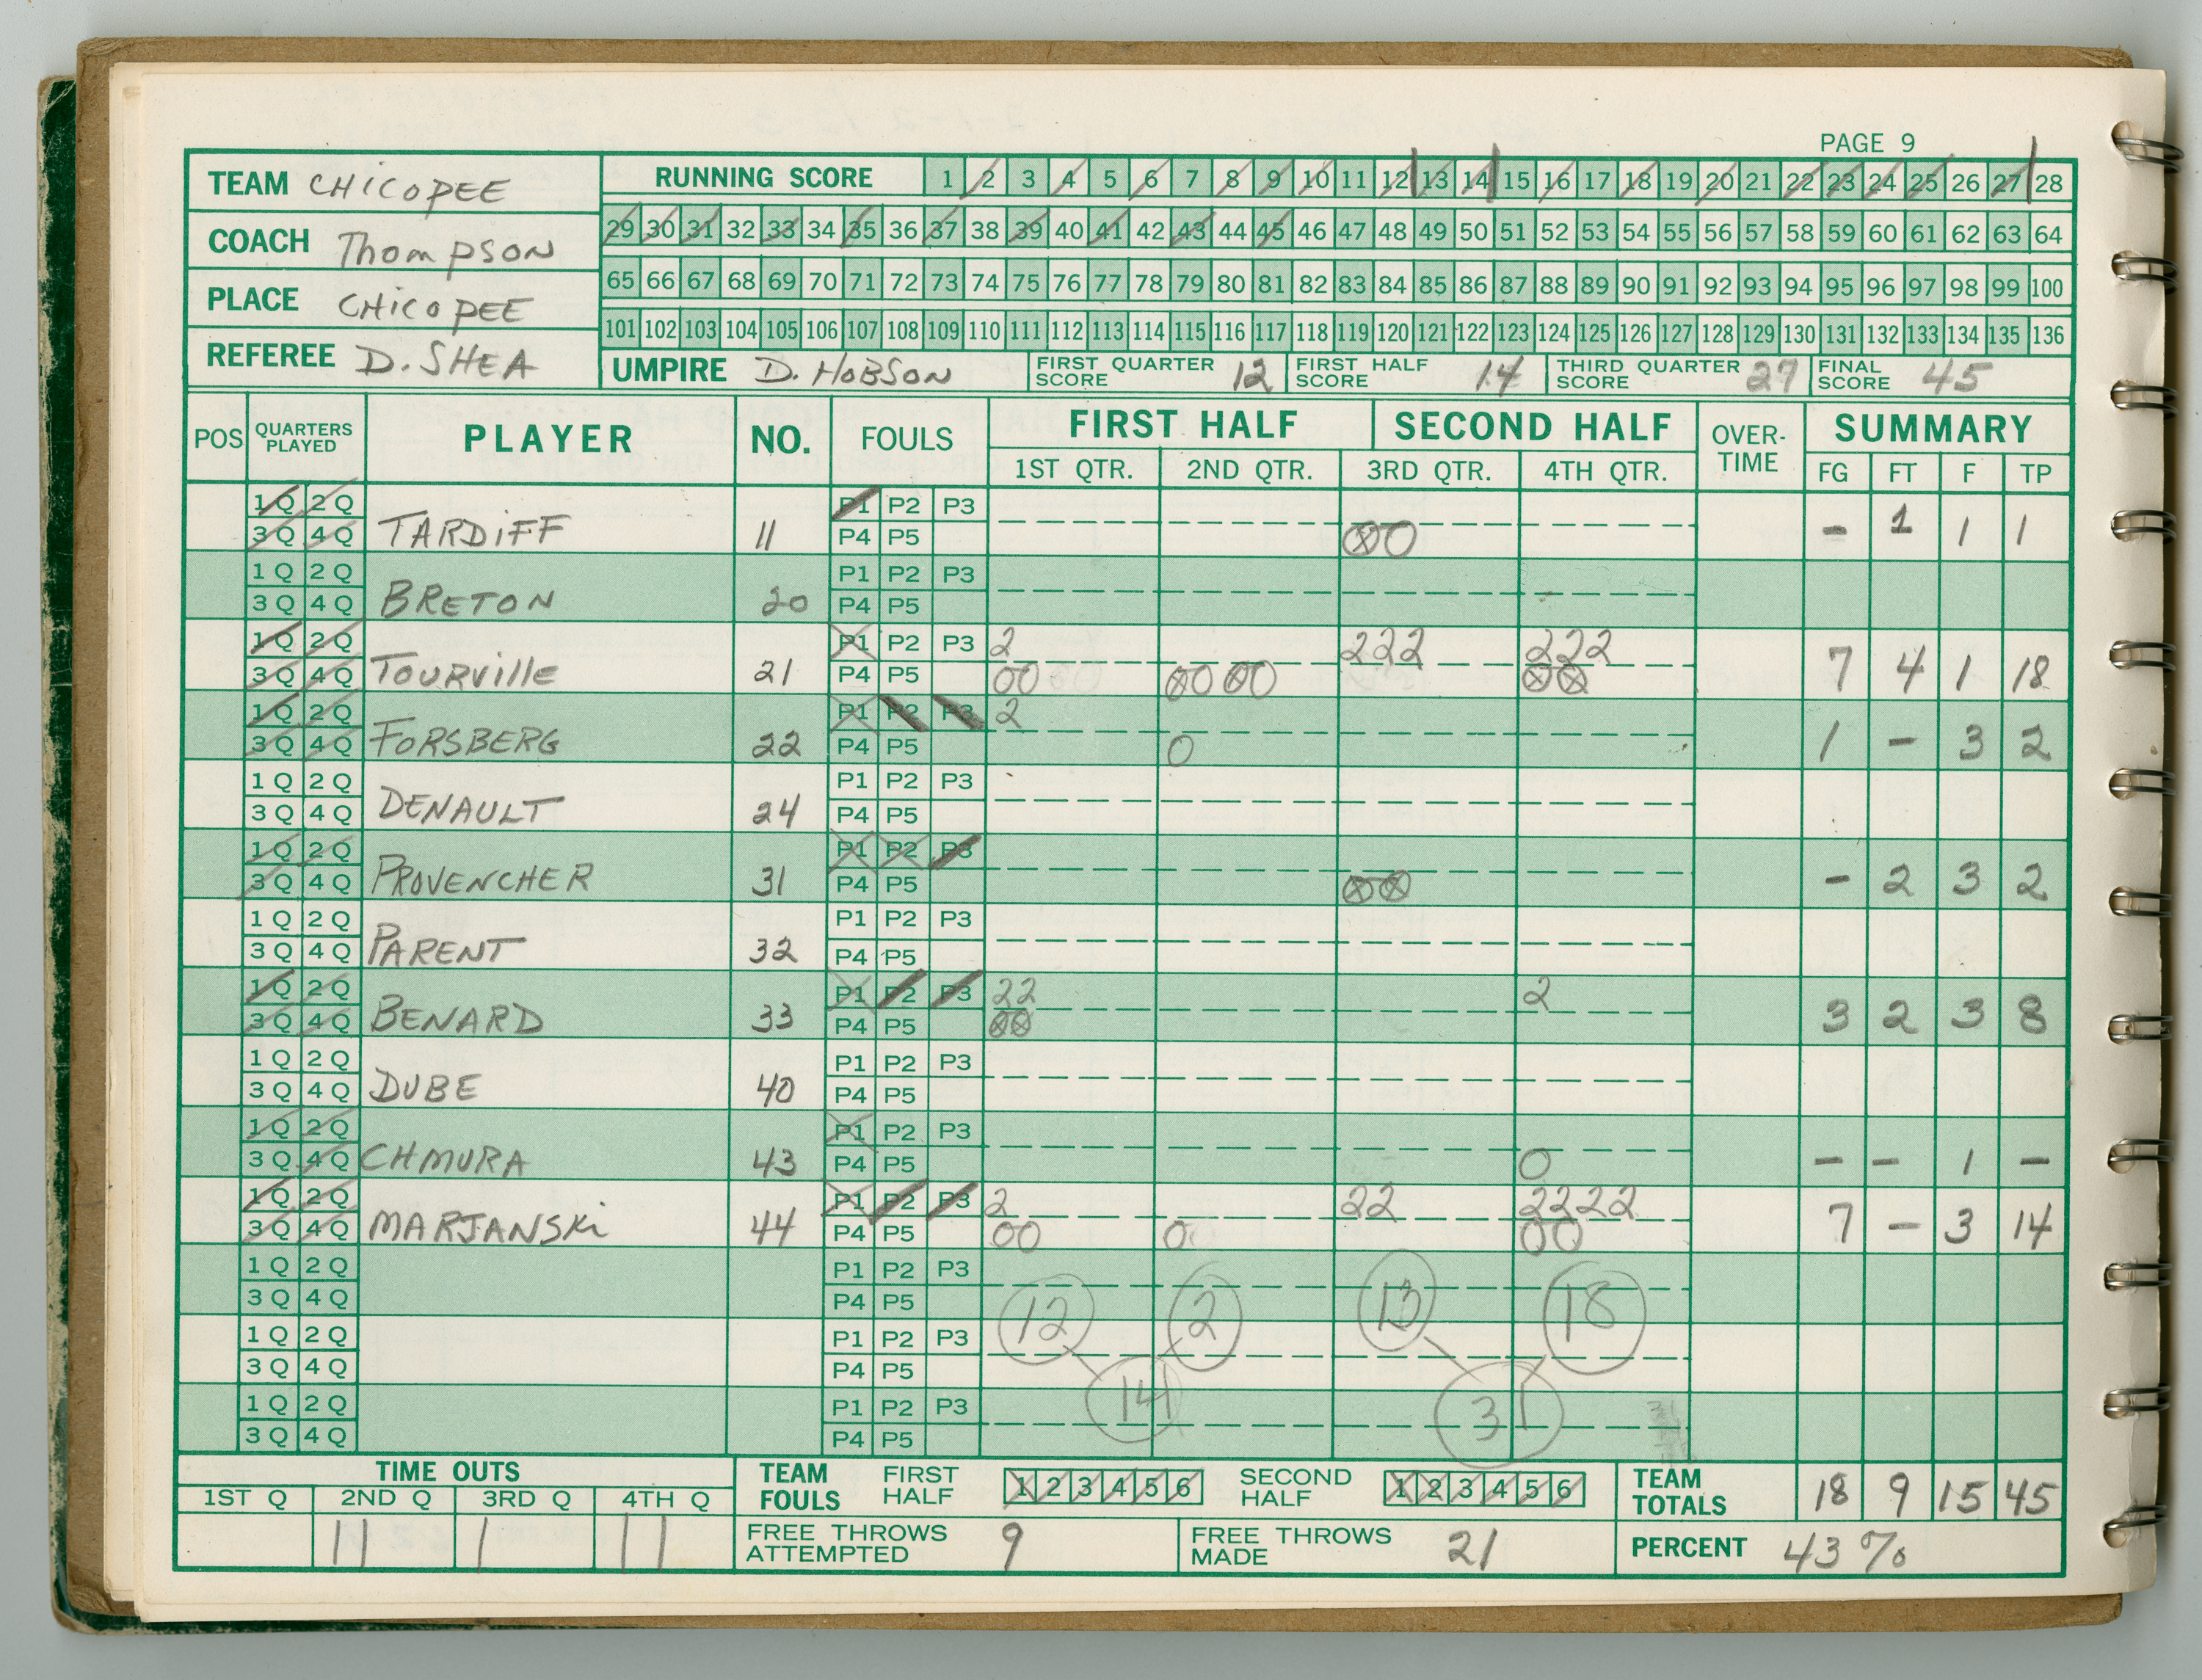 PAGE 9
TEAM CHICOPEE
COACH Thompson
PLACE CHICOPEE
REFEREE D. SHEA
RUNNING SCORE 1 2 3 4 5 6 7 8 9 10 11 12 13 14 15 16 17 18 19 20 21 22 23 24 25 26 27 28
29 30 31 32 33 34 35 36 37 38 39 40 41 42 43 44 45 46 47 48 49 50 51 52 53 54 55 56 57 58 59 60 61 62 63 64
65 66 67 68 69 70 71 72 73 74 75 76 77 78 79 80 81 82 83 84 85 86 87 88 89 90 91 92 93 94 95 96 97 98 99 100
101 102 103 104 105 106 107 108 109 110 111 112 113 114 115 116 117 118 119 120 121 122 123 124 125 126 127 128 129 130 131 132 133 134 135 136
UMPIRE D. HOBSON FIRST QUARTER SCORE 12 FIRST HALF SCORE 14 THIRD QUARTER SCORE 27 FINAL SCORE 45
POS QUARTERS PLAYED PLAYER NO. FOULS FIRST HALF SECOND HALF OVER-TIME SUMMARY
1ST QTR. 2ND QTR. 3RD QTR. 4TH QTR. FG FT F TP
1 Q 2 Q P1 P2 P3
3 Q 4 Q TARDIFF 11 P4 P5 ⊗0 - 1 1 1
1 Q 2 Q P1 P2 P3
3 Q 4 Q BRETON 20 P4 P5
1 Q 2 Q P1 P2 P3 2 222 222
3 Q 4 Q TOURVILLE 21 P4 P5 00 ⊗0 ⊗0 ⊗⊗ 7 4 1 18
1 Q 2 Q P1 P2 P3 2
3 Q 4 Q FORSBERG 22 P4 P5 0 1 - 3 2
1 Q 2 Q P1 P2 P3
3 Q 4 Q DENAULT 24 P4 P5
1 Q 2 Q P1 P2 P3
3 Q 4 Q PROVENCHER 31 P4 P5 ⊗⊗ - 2 3 2
1 Q 2 Q P1 P2 P3
3 Q 4 Q PARENT 32 P4 P5
1 Q 2 Q P1 P2 P3 22 2
3 Q 4 Q BENARD 33 P4 P5 ⊗⊗ 3 2 3 8
1 Q 2 Q P1 P2 P3
3 Q 4 Q DUBE 40 P4 P5
1 Q 2 Q P1 P2 P3
3 Q 4 Q CHMURA 43 P4 P5 0 - - 1 -
1 Q 2 Q P1 P2 P3 2 22 2222
3 Q 4 Q MARJANSKI 44 P4 P5 00 0 00 7 - 3 14
1 Q 2 Q P1 P2 P3
3 Q 4 Q P4 P5 12 2 13 18
1 Q 2 Q P1 P2 P3
3 Q 4 Q P4 P5
1 Q 2 Q P1 P2 P3 14 31
3 Q 4 Q P4 P5
TIME OUTS TEAM FOULS FIRST HALF 1 2 3 4 5 6 SECOND HALF 1 2 3 4 5 6 TEAM TOTALS 18 9 15 45
1ST Q 2ND Q 3RD Q 4TH Q
11 1 11 FREE THROWS ATTEMPTED 9 FREE THROWS MADE 21 PERCENT 43%